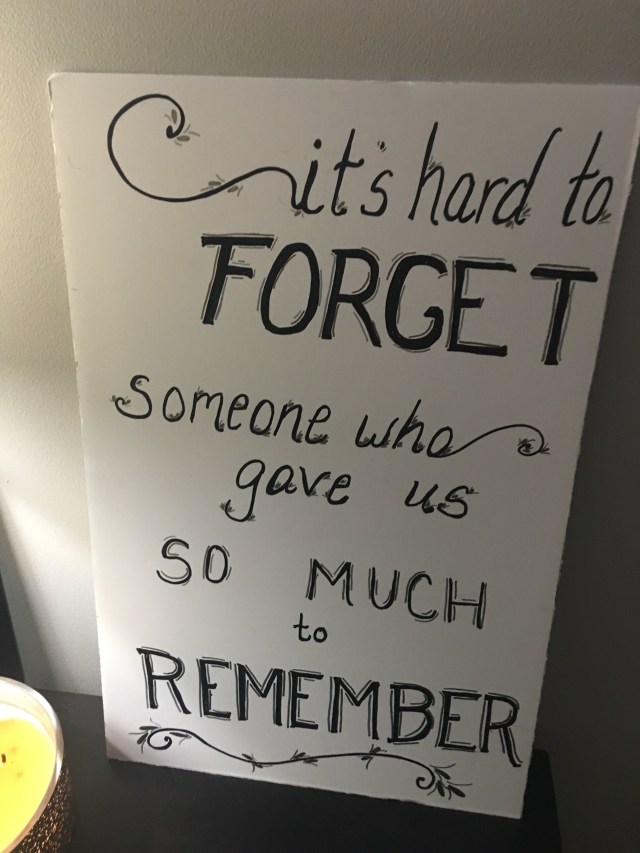 it's hard to
FORGET
someone who
gave us
SO MUCH
to
REMEMBER